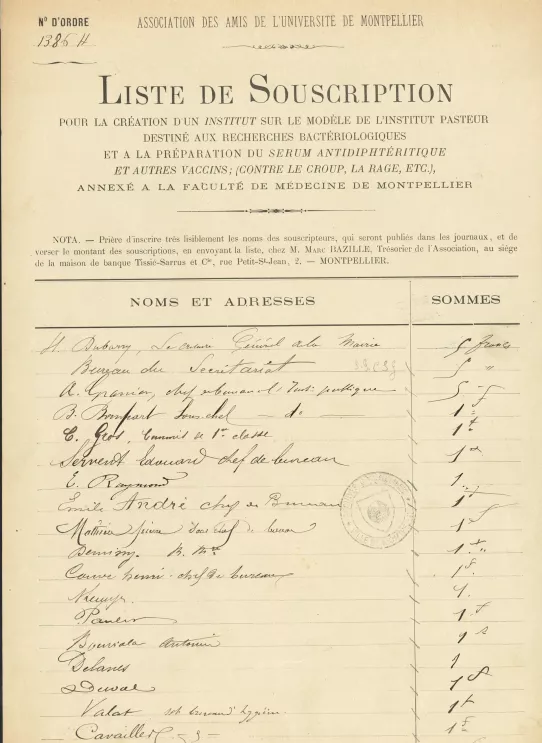 Nº D'ORDRE
1386 H
ASSOCIATION DES AMIS DE L'UNIVERSITÉ DE MONTPELLIER
LISTE DE SOUSCRIPTION
POUR LA CRÉATION D'UN INSTITUT SUR LE MODÈLE DE L'INSTITUT PASTEUR
DESTINÉ AUX RECHERCHES BACTÉRIOLOGIQUES
ET A LA PRÉPARATION DU SERUM ANTIDIPHTÉRITIQUE
ET AUTRES VACCINS; (CONTRE LE CROUP, LA RAGE, ETC.),
ANNEXÉ A LA FACULTÉ DE MÉDECINE DE MONTPELLIER
NOTA. — Prière d'inscrire très lisiblement les noms des souscripteurs, qui seront publiés dans les journaux, et de
verser le montant des souscriptions, en envoyant la liste, chez M. MARC BAZILLE, Trésorier de l'Association, au siège
de la maison de banque Tissié-Sarrus et Cie, rue Petit-St-Jean, 2. — MONTPELLIER.
NOMS ET ADRESSES SOMMES
Général de la Mairie 5 francs
Bureau du Secrétariat 5 "
A. chef 5 f
B. Bompart Sous chef — do — 1 f
C. Gros, Commis de 1re classe 1 f
Servent Edouard chef de bureau 1 f
E. Raymond 1
Emile André chef de Bureau 1 f
Sous chef de bureau 1 f
1 f
henri chef de bureau 1 f
1
1 f
Antonin 1 f
1
Duval 1 f
Valat bureau d'hygiène 1 f
Cavailler 1 f